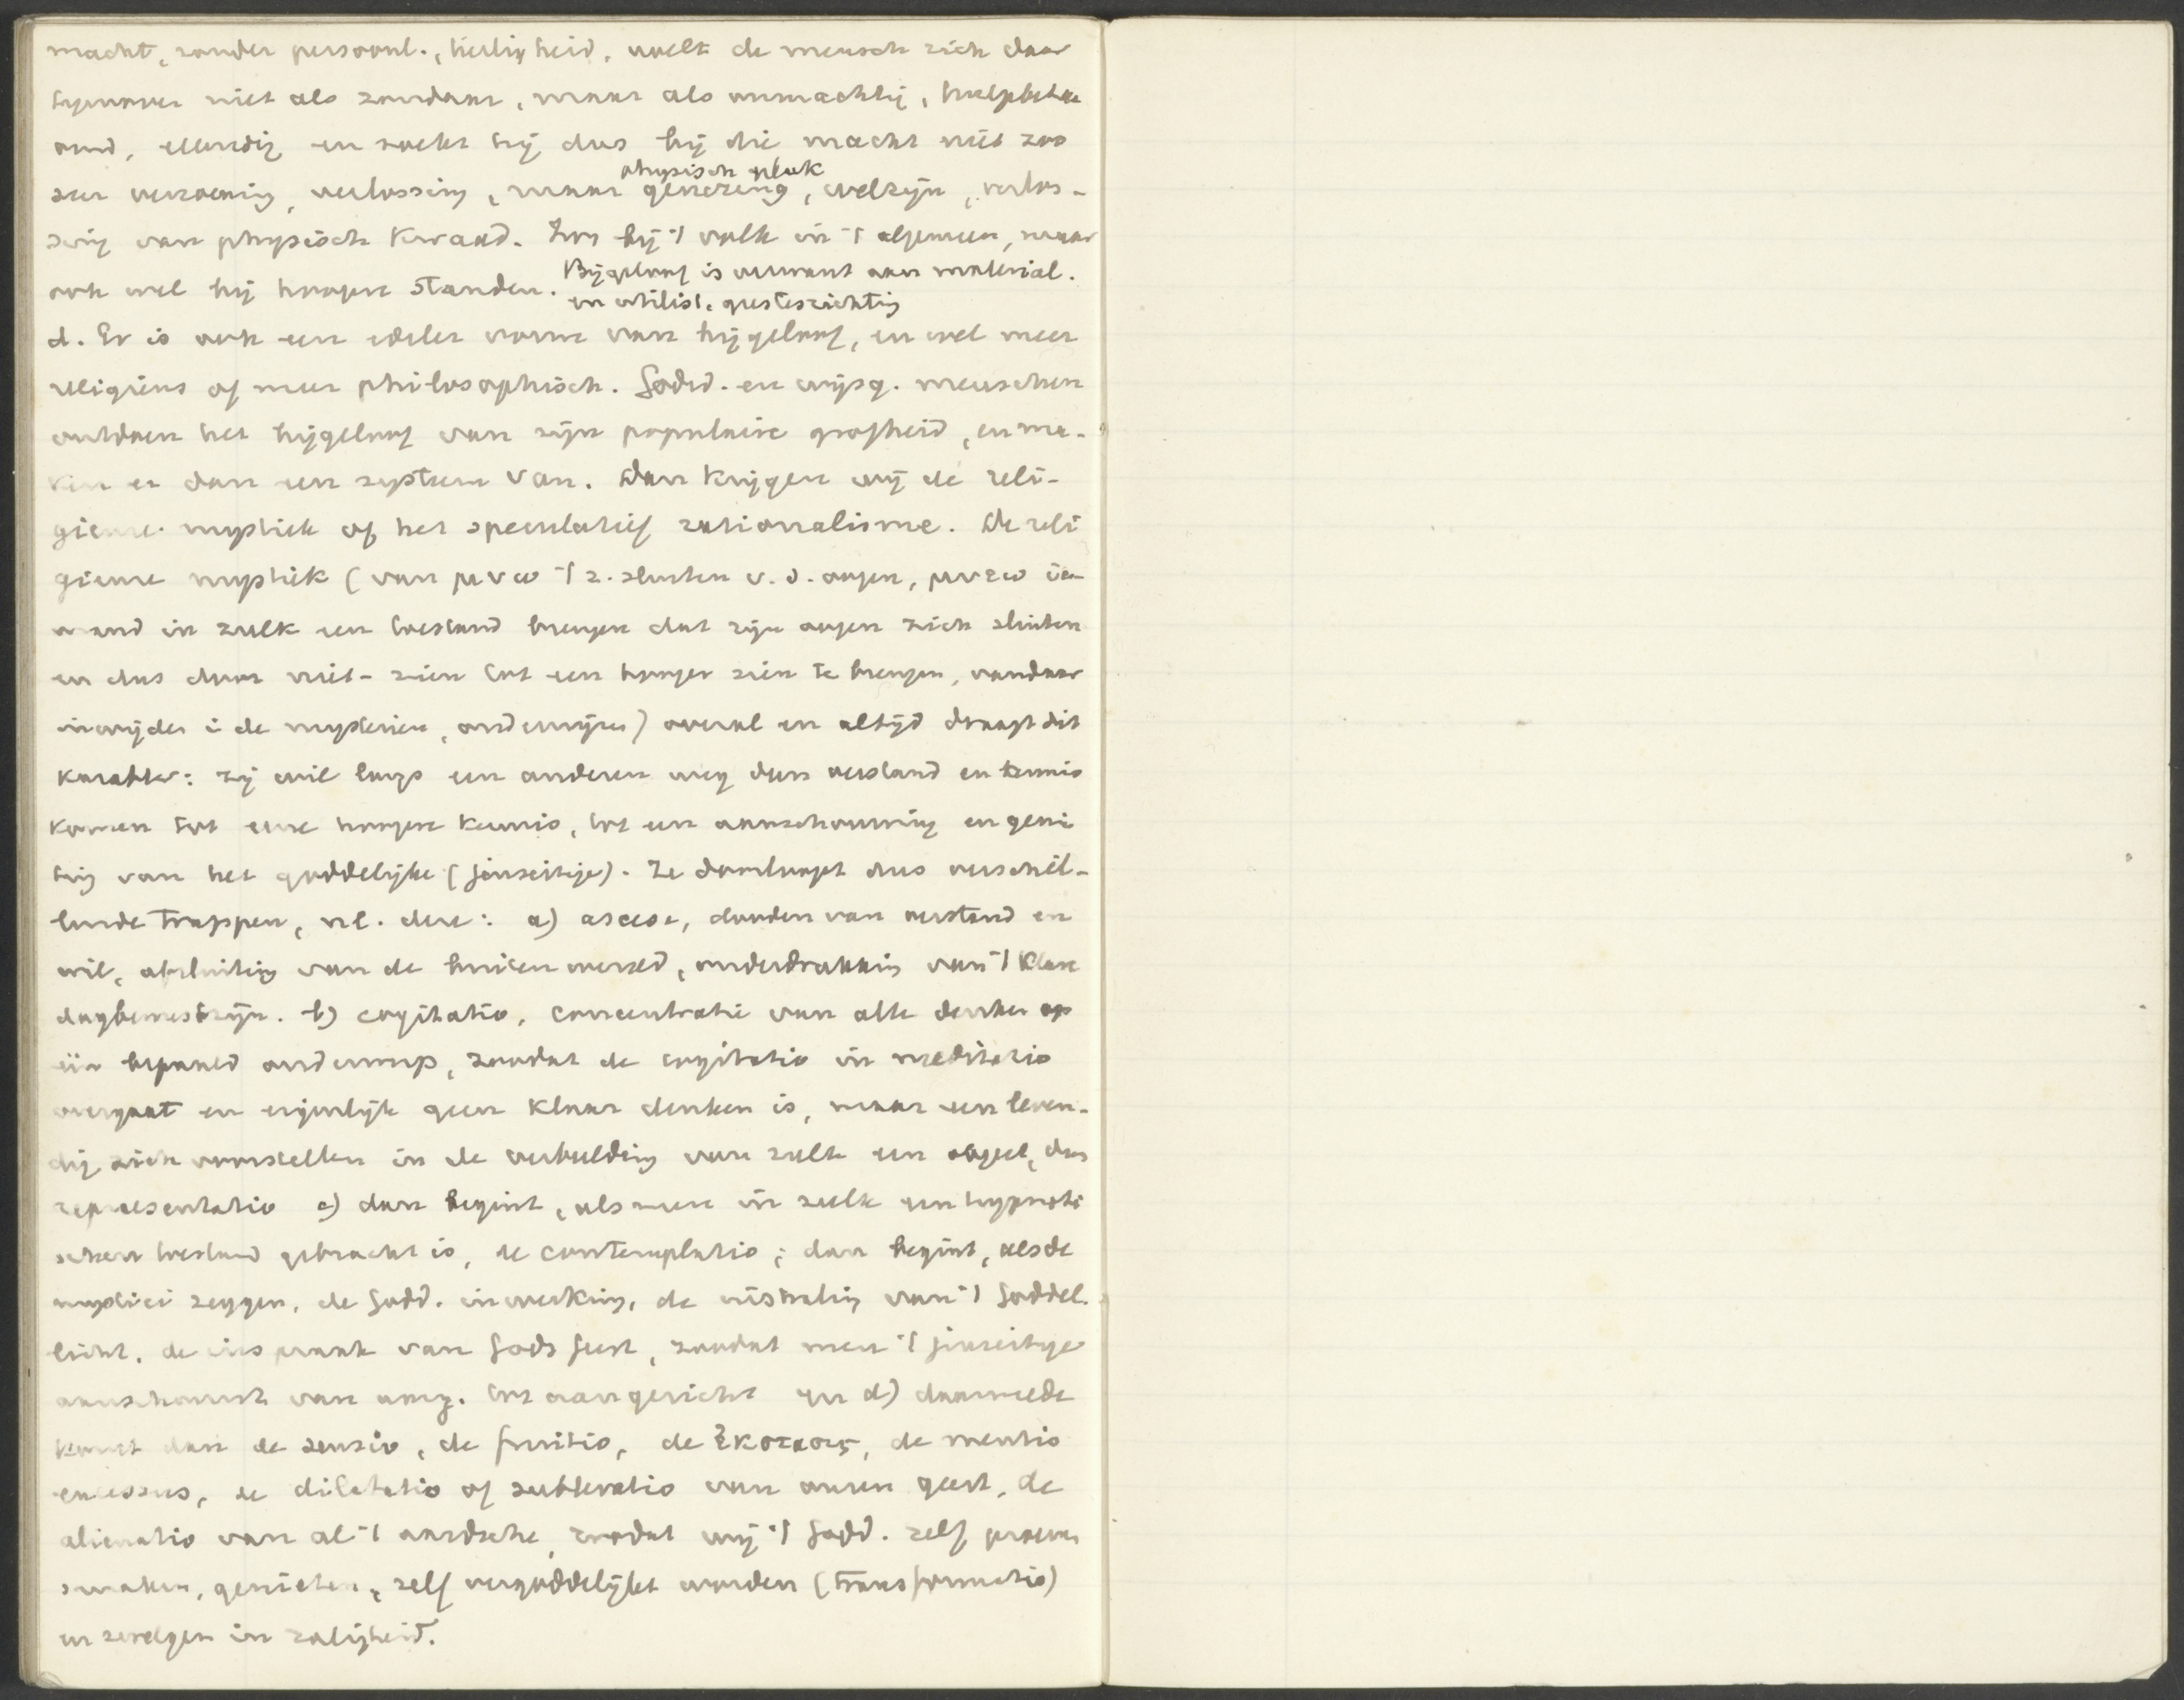 macht, zonder persoonl., heiligheid, voelt de mensch zich daar
tegenover niet als zondaar, maar als onmachtig, hulpbehoe
end, ellendig en zoekt hij dus bij die macht niet zoo
physisch geluk
zeer verzoening, verlossing, maar genezing, welzijn, verlos-
sing van physisch kwaad. Zoo bij 't volk in 't algemeen, maar
ook wel bij hoogere standen. Bijgeloof is verwant aan material.
en utilist. geestesrichting
d. Er is ook een edeler vorm van bijgeloof, en wel meer
religieus of meer philosophisch. Godsd. en wijsg. menschen
ontdoen het bijgeloof van zijn populaire grofheid, en ma-
ken er dan een systeem van. Dan krijgen wij de reli-
gieuse mystiek of het speculatief rationalisme. De reli
gieuse mystiek (van μυω 't z. sluiten v. d. oogen, μυεω ie
mand in zulk een toestand brengen dat zijn oogen zich sluiten
en dus door niet-zien tot een hooger zien te brengen, vandaar
inwijden i de mysterien, onderwijzen) overal en altijd draagt dit
karakter: zij wil langs een anderen weg dan verstand en kennis
komen tot eene hoogere kennis, tot een aanschouwing en genie
ting van het goddelijke (jenseitige). Ze doorloopt dus verschil-
lende trappen, nl. deze: a) ascese, dooden van verstand en
wil, afsluiting van de buitenwereld, onderdrukking van 't klare
dagbewustzijn. b) cogitatio, concentratie van alle denken op
één bepaald onderwerp, zoodat de cogitatio in meditatio
overgaat en eigenlijk geen klaar denken is, maar een leven-
dig zich voorstellen in de verbeelding van zulk een object, dus
repraesentatio c) dan begint, als men in zulk een hypnoti
schen toestand gebracht is, de contemplatio; dan begint, als de
mystici zeggen, de Godd. inwerking, de instraling van 't Goddel.
licht, de inspraak van Gods Geest, zoodat men 't jenseitige
aanschouwt van aang. tot aangezicht en d) daarmede
komt dan de sensio, de fruitio, de ἐκστασις, de mentis
excessus, de dilatatio of sublevatio van onzen geest, de
alienatio van al 't aardsche, zoodat wij 't Godd. zelf proeven
smaken, genieten, zelf vergoddelijkt worden (transformatio)
en zwelgen in zaligheid.